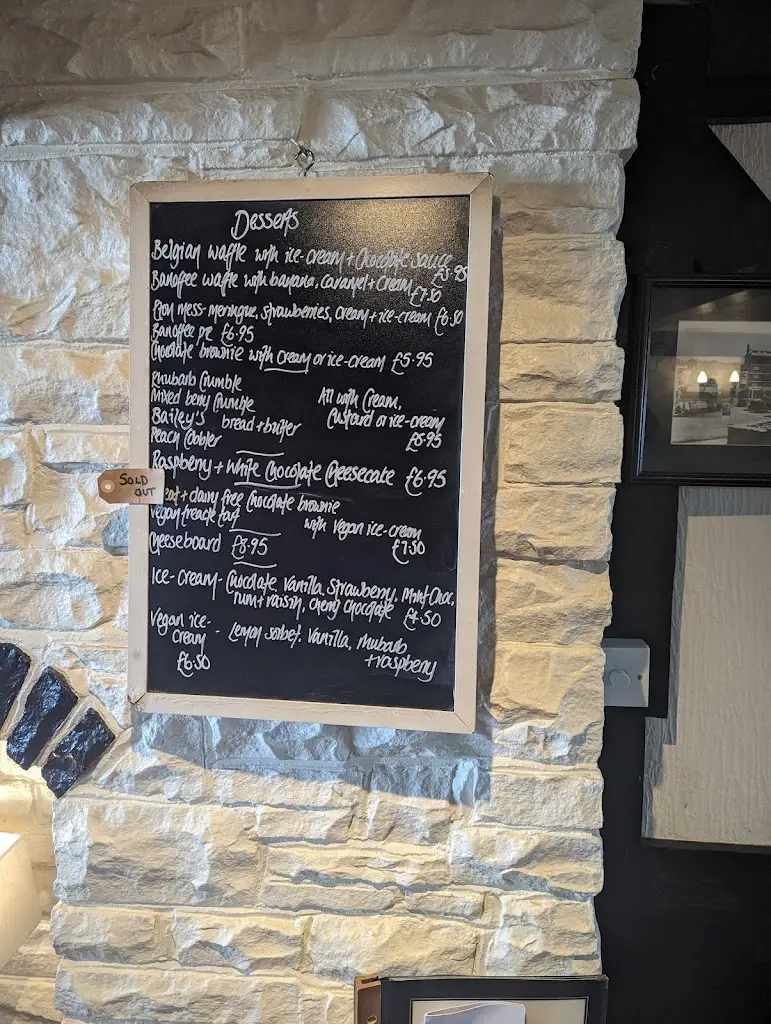 Desserts
Belgian waffle with ice-cream + Chocolate sauce £5.95
Banoffee waffle with banana, caramel + Cream £7.50
Eton mess - meringue, strawberries, cream + ice-cream £6.50
Banoffee pie £6.95
Chocolate brownie with Cream or ice-cream £5.95
Rhubarb Crumble
Mixed berry Crumble
Bailey's bread + butter
Peach Cobbler
All with Cream,
Custard or ice-cream
£5.95
Raspberry + White Chocolate Cheesecake £6.95
SOLD
OUT
+ dairy free Chocolate brownie
Vegan treacle tart
with Vegan ice-cream
£7.50
Cheeseboard £8.95
Ice-cream - Chocolate, Vanilla, Strawberry, Mint Choc,
rum + raisin, Cherry Chocolate £4.50
Vegan ice-
cream - Lemon sorbet, Vanilla, rhubarb
+ raspberry
£6.50